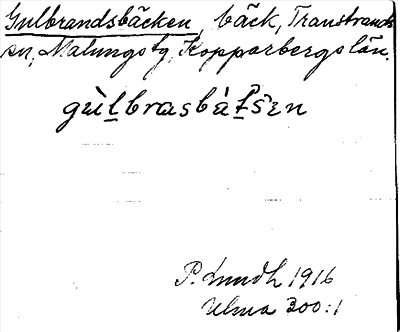 Gulbrandsbäcken, bäck, Transtrands
sn, Malungs tg, Kopparbergs län.
gùl̲brasbät̲s̃ɛn
P. Lundh 1916
Ulma 300:1